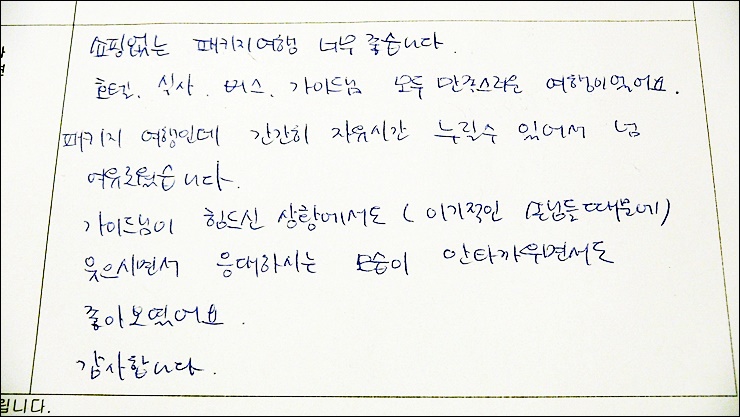 쇼핑없는 패키지여행 너무 좋습니다.
호텔, 식사, 버스, 가이드님 모두 만족스러운 여행이었어요.
패키지 여행인데 간간히 자유시간 누릴수 있어서 넘
여유로웠습니다.
가이드님이 힘드신 상황에서도 (이기적인 손님들때문에)
웃으시면서 응대하시는 모습이 안타까우면서도
좋아보였어요.
감사합니다.
립니다.